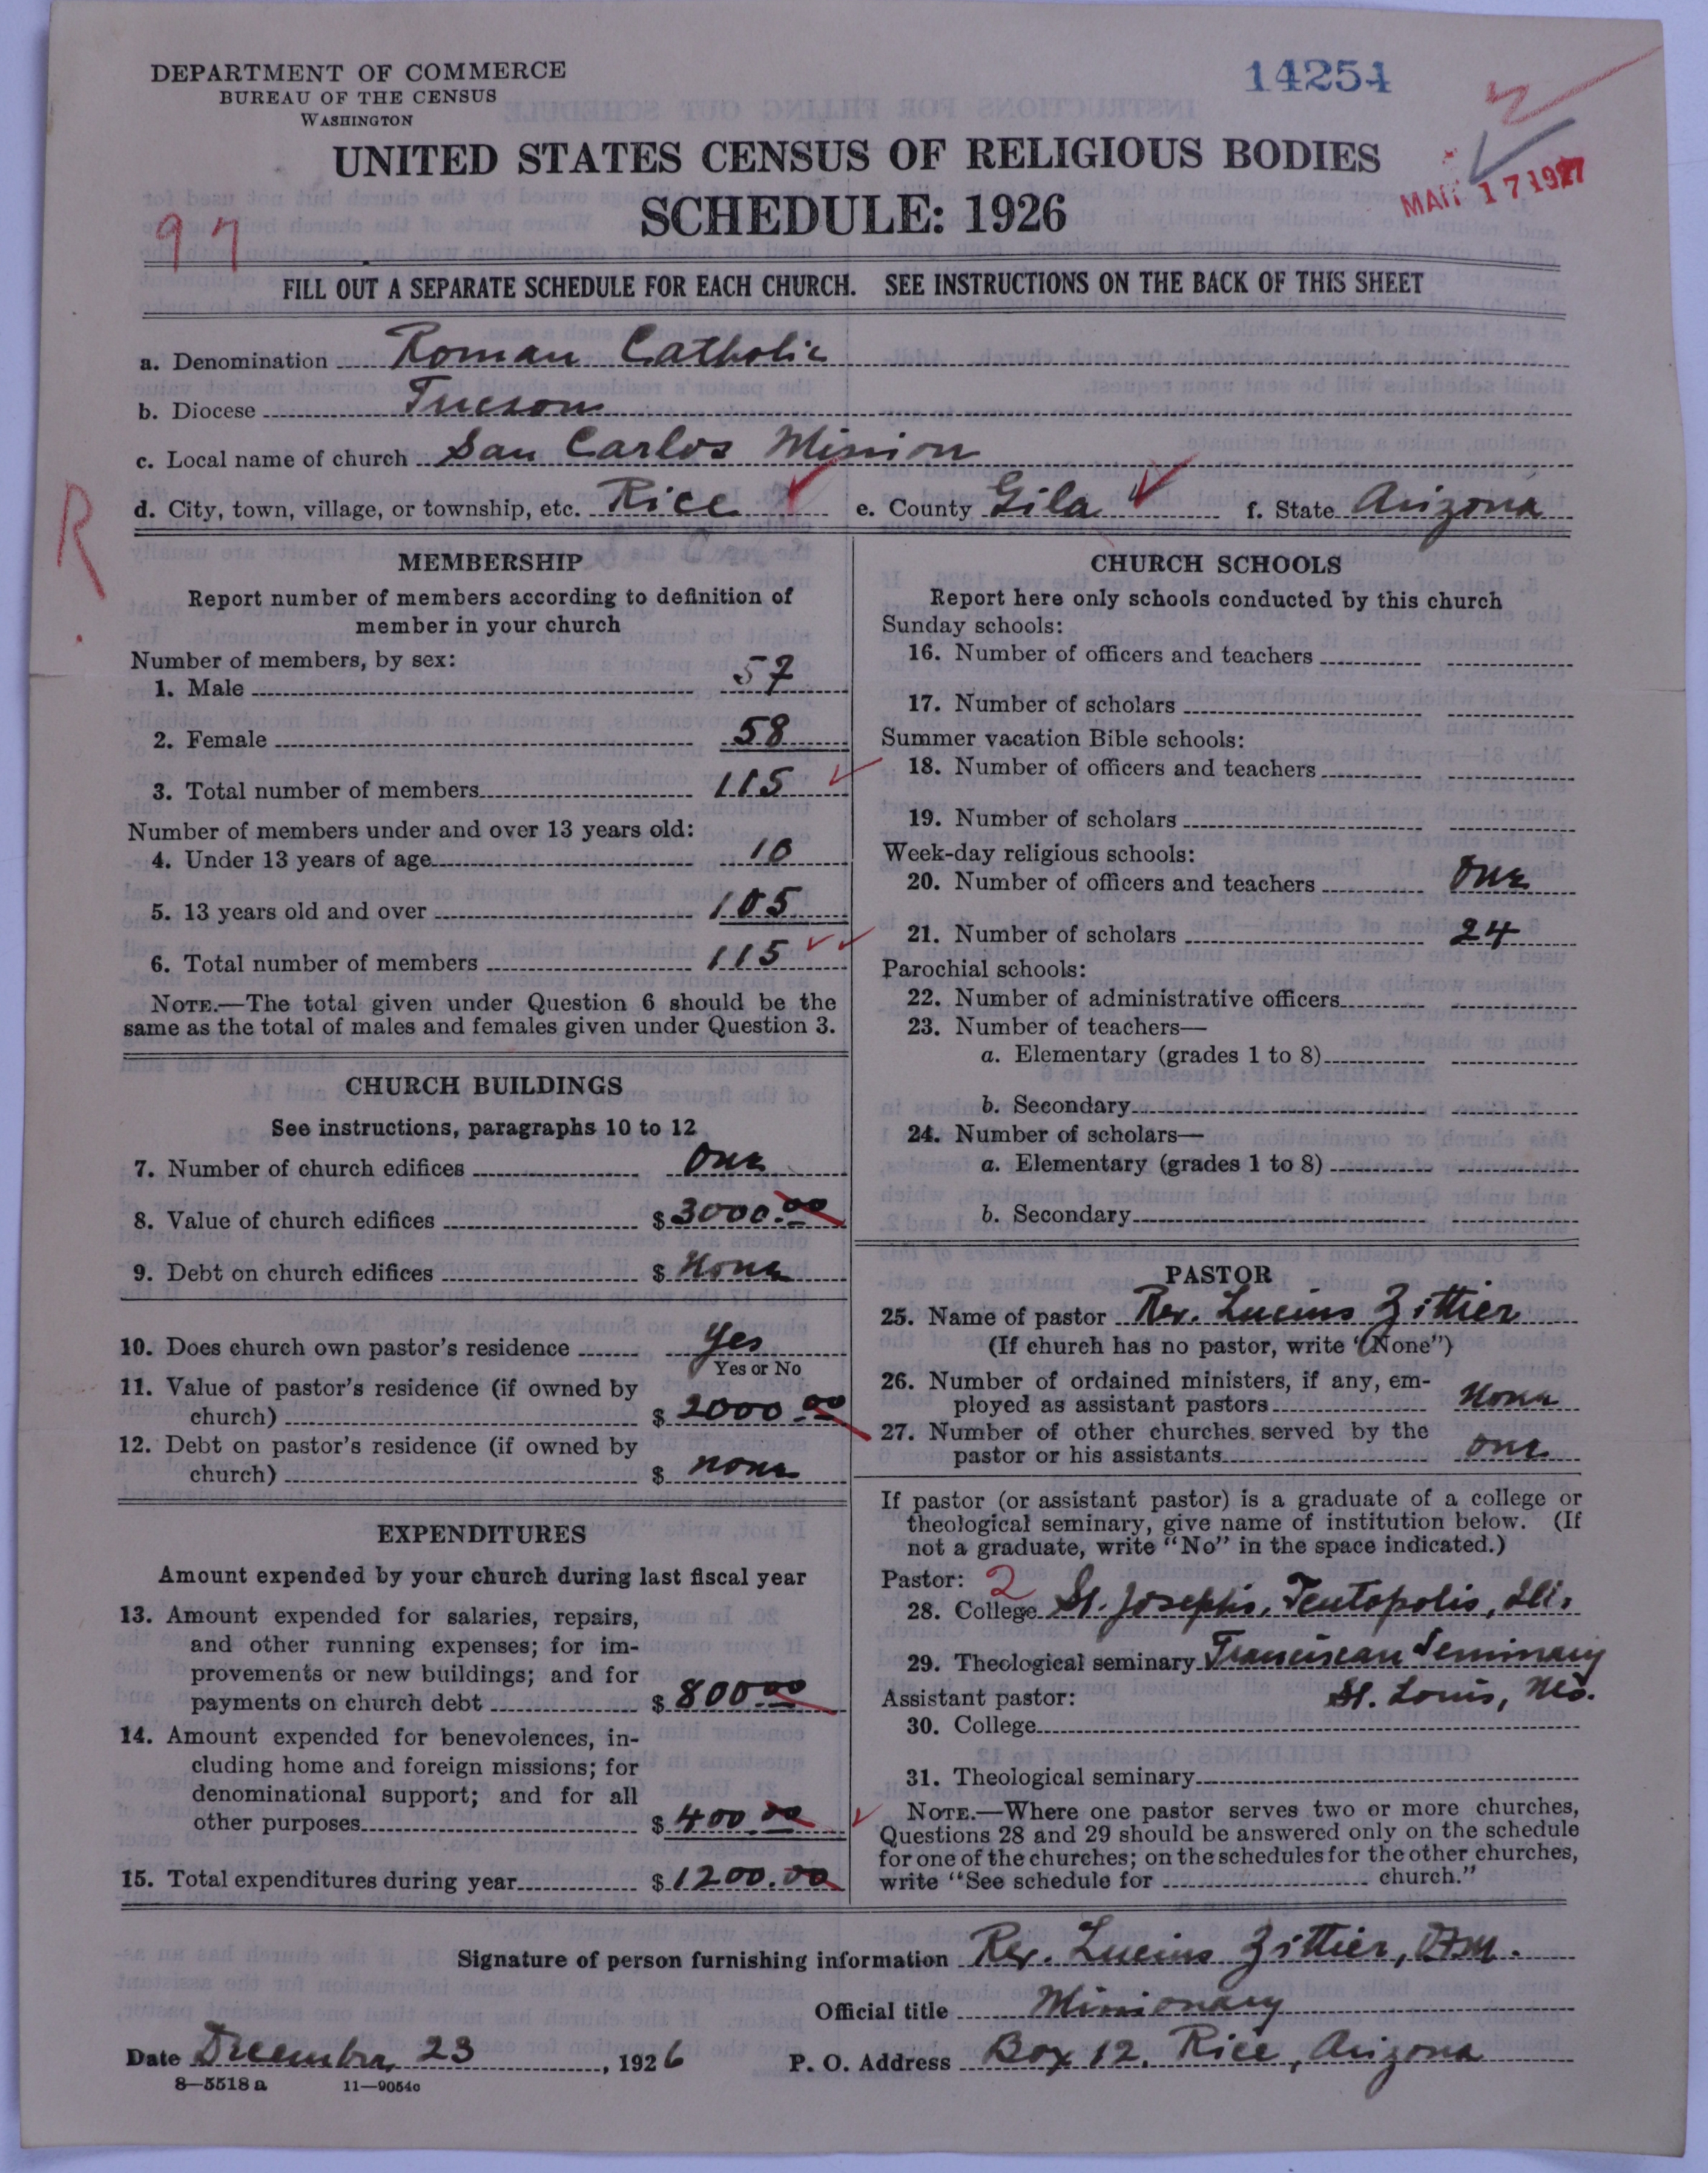 DEPARTMENT OF COMMERCE
BUREAU OF THE CENSUS
WASHINGTON
14254
UNITED STATES CENSUS OF RELIGIOUS BODIES
SCHEDULE: 1926
MAR 17 1927
97
FILL OUT A SEPARATE SCHEDULE FOR EACH CHURCH. SEE INSTRUCTIONS ON THE BACK OF THIS SHEET
a. Denomination Roman Catholic
b. Diocese Tucson
c. Local name of church San Carlos Mission
d. City, town, village, or township, etc. Rice e. County Gila f. State Arizona
R
MEMBERSHIP
Report number of members according to definition of
member in your church
Number of members, by sex:
1. Male 57
2. Female 58
3. Total number of members 115
Number of members under and over 13 years old:
4. Under 13 years of age 10
5. 13 years old and over 105
6. Total number of members 115
NOTE.—The total given under Question 6 should be the
same as the total of males and females given under Question 3.
CHURCH BUILDINGS
See instructions, paragraphs 10 to 12
7. Number of church edifices One
8. Value of church edifices $3000.00
9. Debt on church edifices $ None
10. Does church own pastor's residence Yes
Yes or No
11. Value of pastor's residence (if owned by
church) $ 2000.00
12. Debt on pastor's residence (if owned by
church) $ none
EXPENDITURES
Amount expended by your church during last fiscal year
13. Amount expended for salaries, repairs,
and other running expenses; for im-
provements or new buildings; and for
payments on church debt $ 800.00
14. Amount expended for benevolences, in-
cluding home and foreign missions; for
denominational support; and for all
other purposes $ 400.00
15. Total expenditures during year $ 1200.00
CHURCH SCHOOLS
Report here only schools conducted by this church
Sunday schools:
16. Number of officers and teachers
17. Number of scholars
Summer vacation Bible schools:
18. Number of officers and teachers
19. Number of scholars
Week-day religious schools:
20. Number of officers and teachers One
21. Number of scholars 24
Parochial schools:
22. Number of administrative officers
23. Number of teachers—
a. Elementary (grades 1 to 8)
b. Secondary
24. Number of scholars—
a. Elementary (grades 1 to 8)
b. Secondary
PASTOR
25. Name of pastor Rev. Lucius Zittier
(If church has no pastor, write "None")
26. Number of ordained ministers, if any, em-
ployed as assistant pastors None
27. Number of other churches served by the
pastor or his assistants one
If pastor (or assistant pastor) is a graduate of a college or
theological seminary, give name of institution below. (If
not a graduate, write "No" in the space indicated.)
Pastor: 2
28. College St. Josephs, Teutopolis, Ill.
29. Theological seminary Franciscan Seminary
Assistant pastor: St. Louis, Mo.
30. College
31. Theological seminary
NOTE.—Where one pastor serves two or more churches,
Questions 28 and 29 should be answered only on the schedule
for one of the churches; on the schedules for the other churches,
write "See schedule for church."
Signature of person furnishing information Rev. Lucius Zittier, OFM.
Official title Missionary
Date December 23, 1926 P. O. Address Box 12, Rice, Arizona
8—5518 a 11—9054c